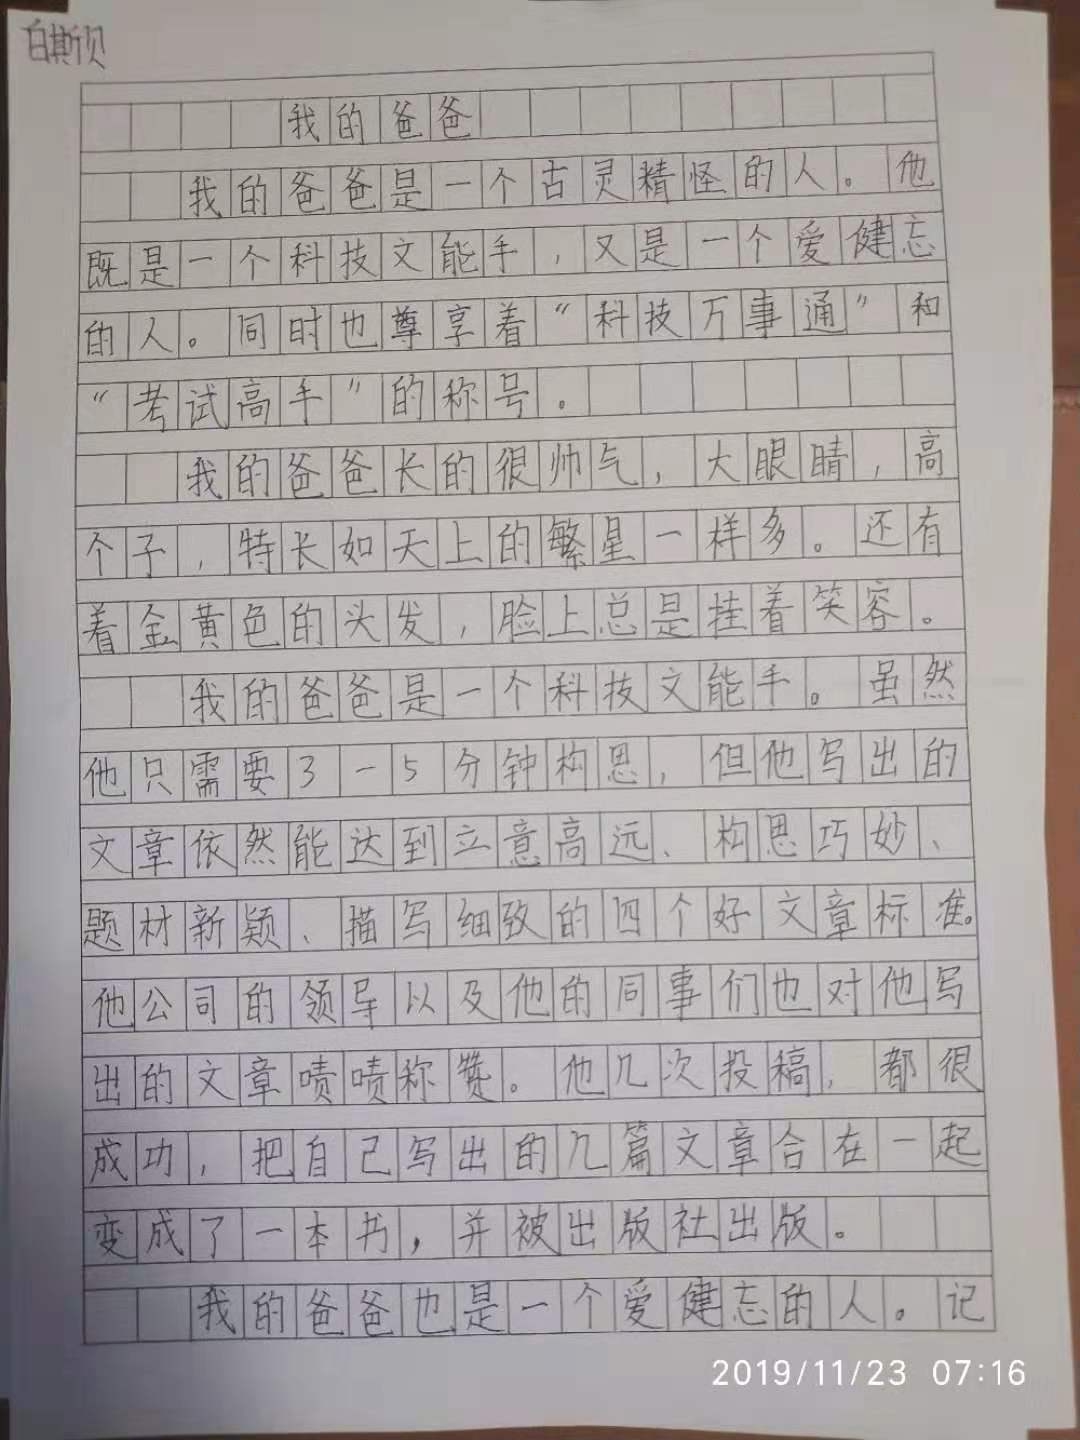 白斯贝
我的爸爸
我的爸爸是一个古灵精怪的人。他
既是一个科技文能手，又是一个爱健忘
的人。同时也尊享着“科技万事通”和
“考试高手”的称号。
我的爸爸长的很帅气，大眼睛，高
个子，特长如天上的繁星一样多。还有
着金黄色的头发，脸上总是挂着笑容。
我的爸爸是一个科技文能手。虽然
他只需要3-5分钟构思，但他写出的
文章依然能达到立意高远、构思巧妙、
题材新颖、描写细致的四个好文章标准。
他公司的领导以及他的同事们也对他写
出的文章啧啧称赞。他几次投稿，都很
成功，把自己写出的几篇文章合在一起
变成了一本书，并被出版社出版。
我的爸爸也是一个爱健忘的人。记
2019/11/23 07:16